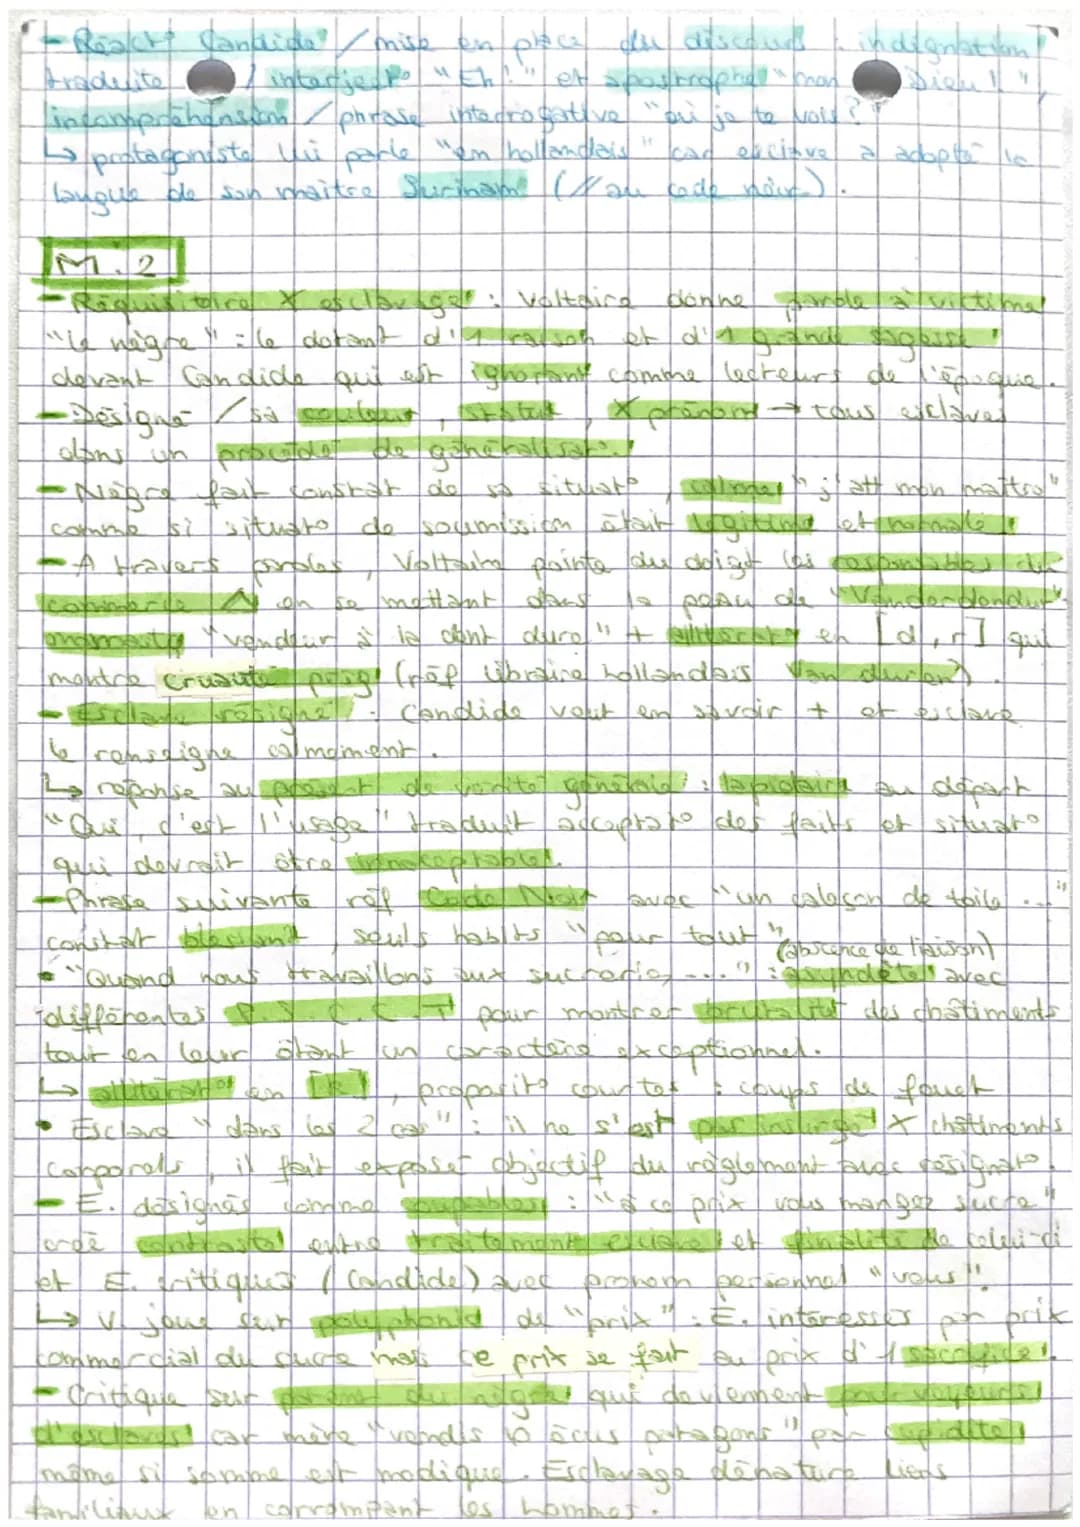 - Réact° Candide / mise en place du discours : indignation
traduite / interject° "Eh!" et apostrophe "mon Dieu!",
incompréhension / phrase interrogative "où je te vois?"
↳ protagoniste lui parle "en hollandais" car esclave a adopté la
langue de son maître Surinam (// au code noir).
M. 2
- Réquisitoire X esclavage : Voltaire donne parole à victime
"le nègre" : le dotant d'1 raison et d'1 grande sagesse
devant Candide qui est ignorant comme lecteurs de l'époque.
- Désigné / sa couleur, statut, X prénom → tous esclaves
dans un procédé de généralisat°.
- Nègre fait constat de sa situat°, calme "j'att mon maître"
comme si situat° de soumission était légitime et normale
- A travers paroles, Voltaire pointe du doigt les responsables du
commerce en se mettant dans la peau de "Vanderdendur"
"vendeur à la dent dure" + allitérat° en [d, r] qui
montre cruauté perso (réf libraire hollandais Van duren).
- Esclave résigné : Candide veut en savoir + et esclave
le renseigne calmement.
↳ réponse au présent de vérité générale : lapidaire au départ
"Oui, c'est l'usage" traduit acceptat° des faits et situat°
qui devrait être innaceptable.
- Phrase suivante réf Code Noir avec "un caleçon de toile ..."
constat blessant, seuls habits "pour tout"
(absence de liaison)
• "Quand nous travaillons aux sucreries ..." : asyndète avec
différentes P.S.C.C.T pour montrer brutalité des châtiments
tout en leur ôtant un caractère exceptionnel.
↳ allitérat° en [R], proposit° courtes : coups de fouet
• Esclave "dans les 2 cas" : il ne s'est pas insurgé X châtiments
corporels, il fait exposé objectif du règlement avec résignat°.
- E. désignés comme coupables : "à ce prix vous mangez sucre"
crée contraste entre traitement esclave et finalité de celui-ci
et E. critiqués (Candide) avec pronom personnel "vous".
↳ V. joue sur polyphonie de "prix" : E. intéresser par prix
commercial du sucre mais ce prix se fait au prix d'1 sacrifice.
- Critique sur parent du nègre qui deviennent pourvoyeurs
d'esclaves car mère "vendis 10 écus patagons" par cupidité
même si somme est modique. Esclavage dénature liens
familiaux en corrompant les hommes.